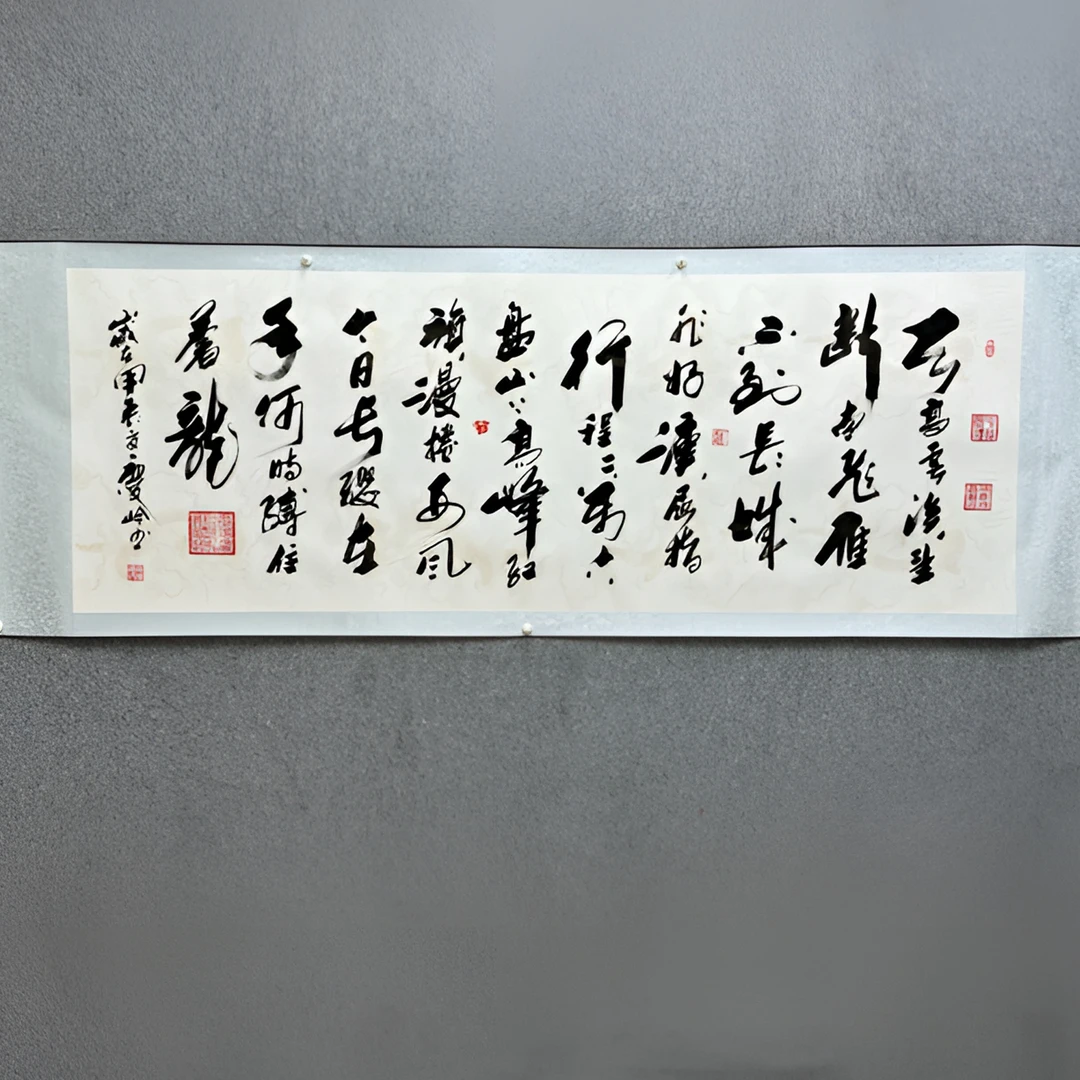 天高雲淡望
断南飛雁
不到長城
非好漢屈指
行程二萬六
盤山上高峰紅
旗漫捲西風
今日長纓在
手何時縛住
蒼龍